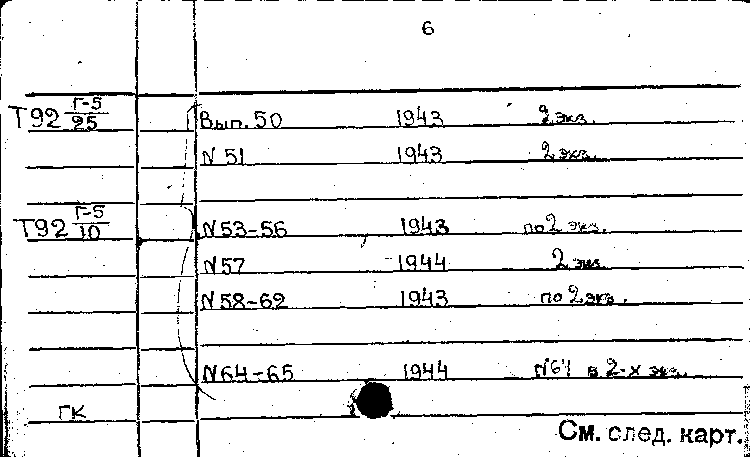 6
Т92 Г-5/25 Вып. 50 1943 2 экз.
N 51 1943 2 экз.
Т92 Г-5/10 N 53-56 1943 по 2 экз.
N 57 1944 2 экз
N 58-62 1943 по 2 экз.
N 64-65 1944 N 64 в 2-х экз.
ГК
См. след. карт.